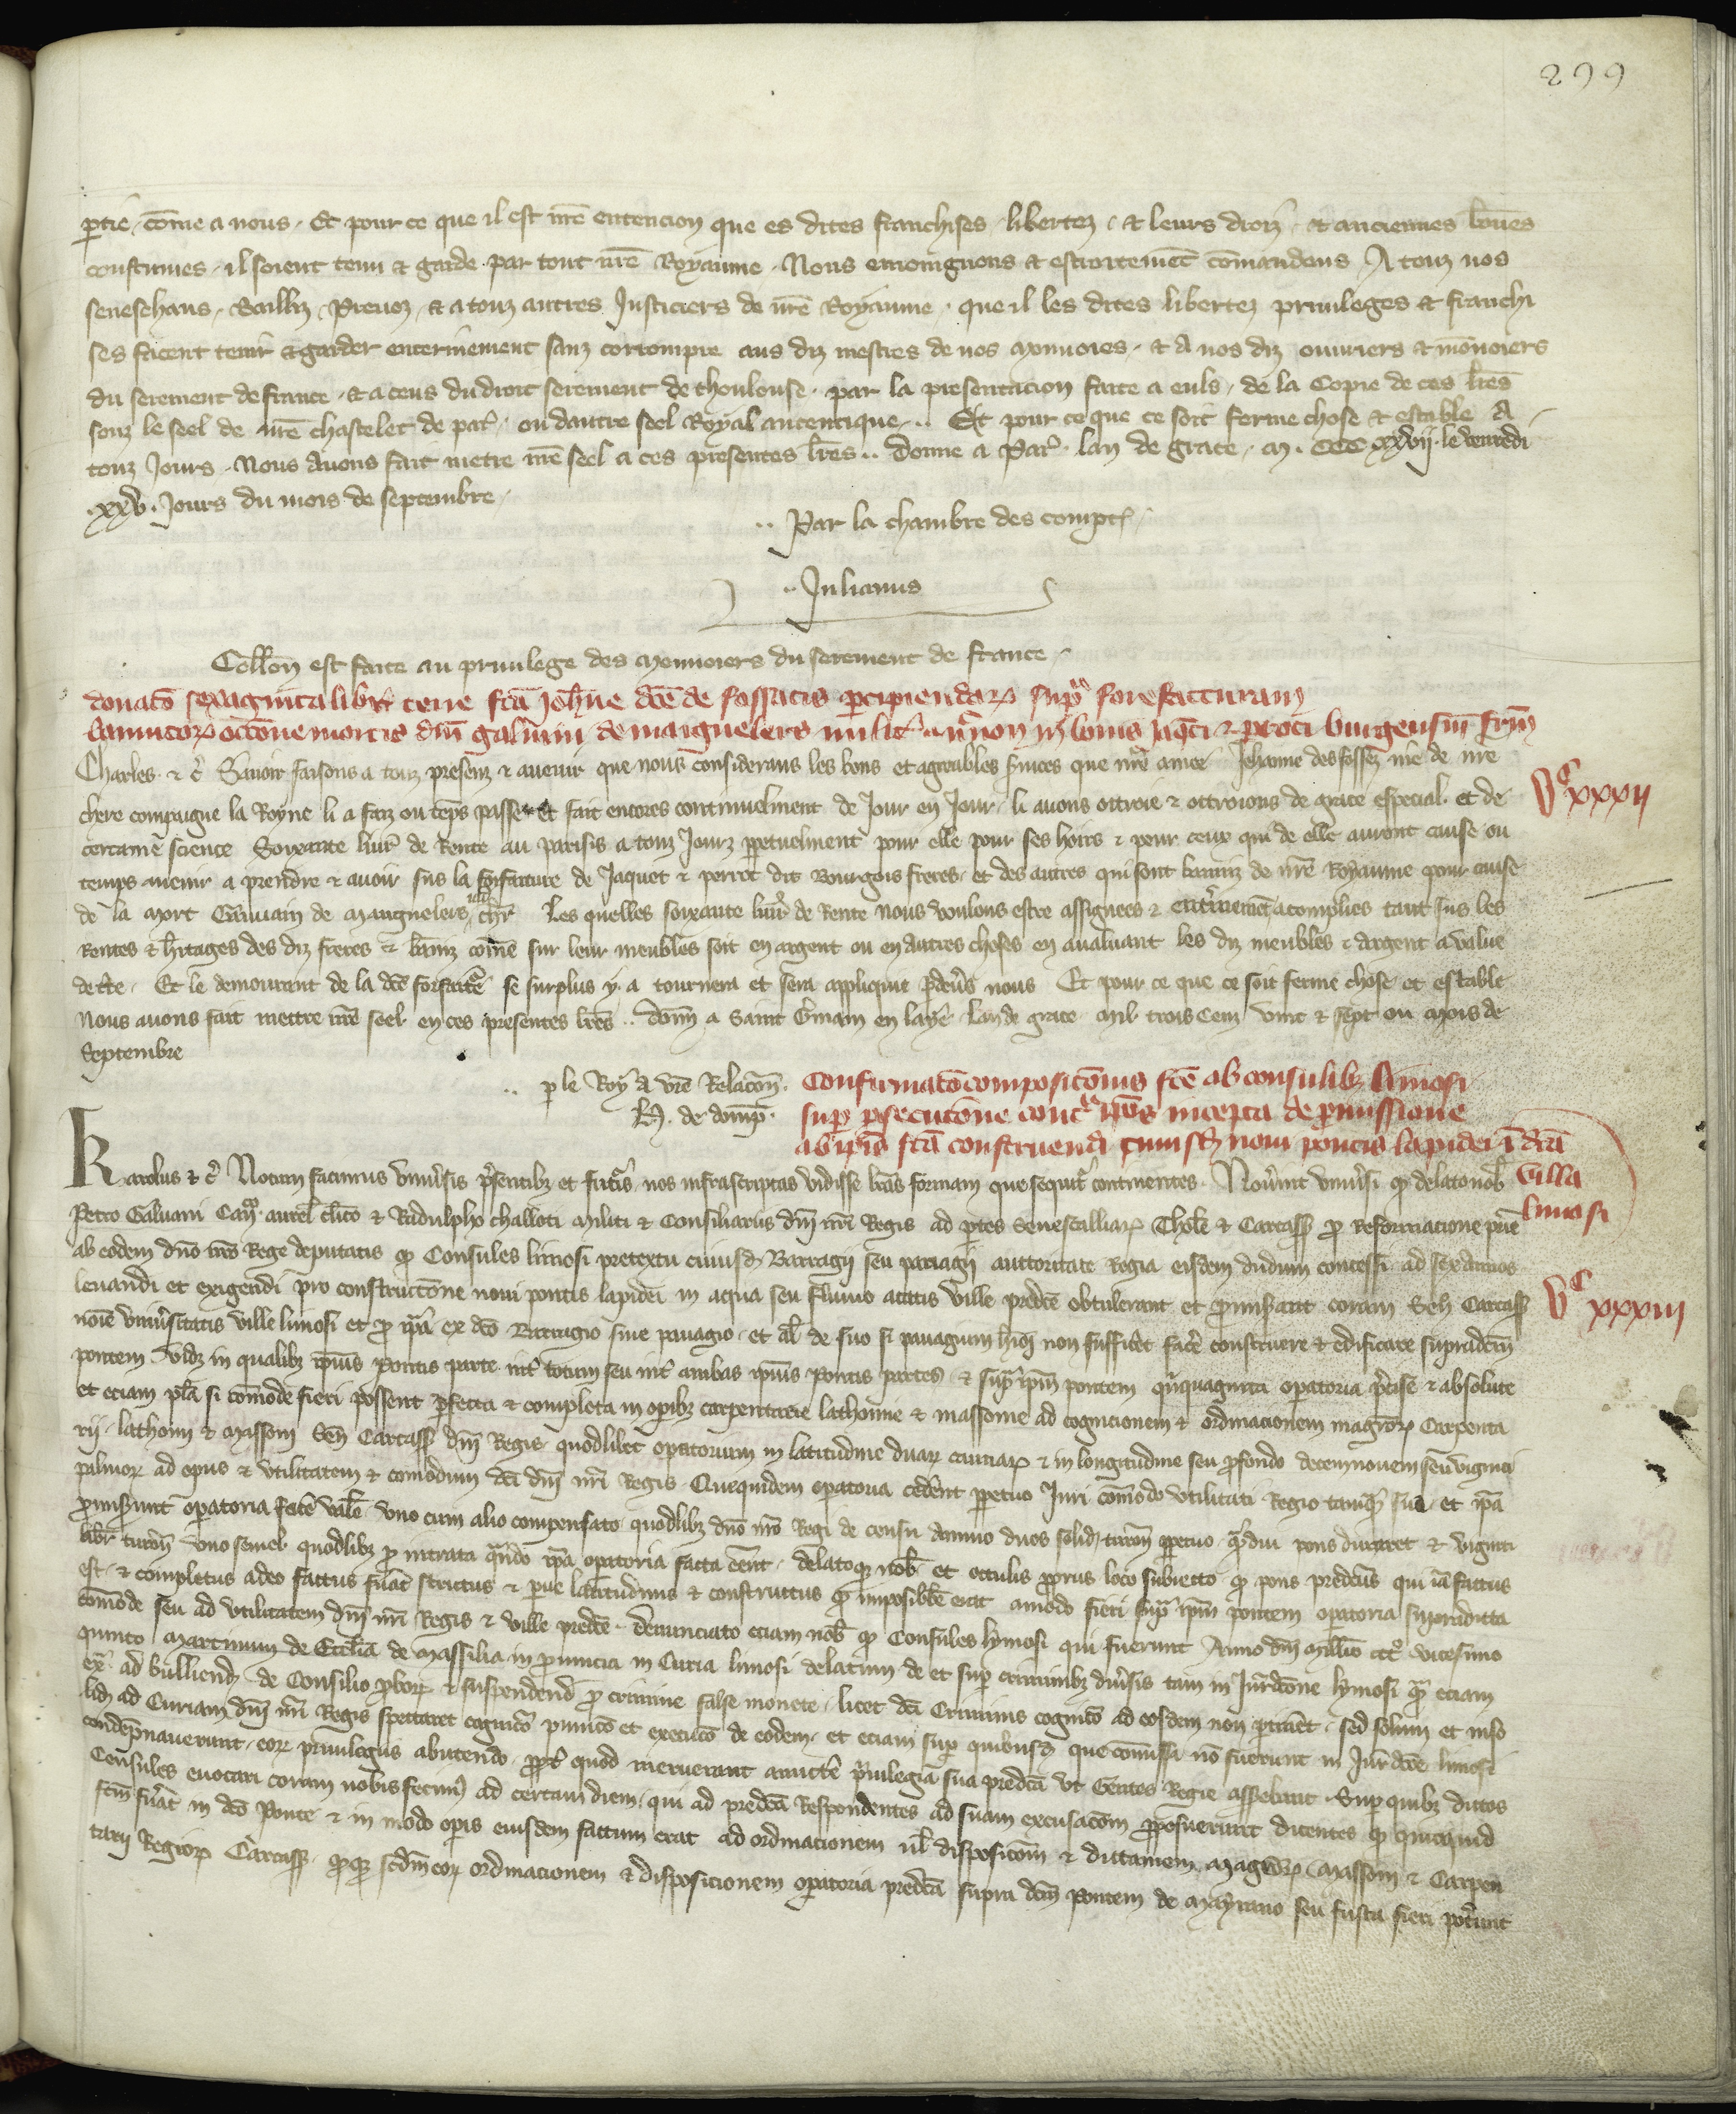 299
ptie, come a nous. Et pour ce que il est nre entencion que es dites franchises, libertez, et leurs droiz, et anciennes bones
coustumes, il soient tenu et garde par tout nre Royaume. Nous enioignons et estroitement comandons A touz nos
seneschaus, Bailliz, Prevoz, et a touz autres Justiciers de nre Royaume, que il les dites libertez privileges et franchi
ses facent tenir et garder enterinement sanz corrompre aus diz mestres de nos monnoies, et a nos diz ouvriers et monoiers
du serement de france, et a ceus du droit serement de thoulouse, par la presentacion faite a euls, de la Copie de ces lres
souz le seel de nre chastelet de par, ou dautre seel Royal autentique. Et pour ce que ce soit ferme chose et estable A
touz Jours, Nous avons fait metre nre seel a ces presentes lres.. donne a Par. lan de grace, M. CCC xxvij. le venredi
.xxv. Jours du mois de septembre.
.. Par la chambre des compt.
.. Julianus
Collon est faite au privilege des monnoiers du serement de france.
donato sexaginta libr terre fca Johne dce de fossatis percipiendar supra forefacturam
bannitor occone mortis dni galvani de maignelers milit in bonis Jaqti & peroti burgensium frm
Charles & c Savoir faisons a touz presenz & avenir que nous considerans les bons et agreables svices que nre amee Jehanne des fossez de nre
chere compaigne la Royne li a faiz ou teps passe et fait encores continuelment de Jour en Jour, li avons ottroie & ottroions de grace especial et de
certaine science Soixante livr de Rente au parisis a touz Jourz perpetuelment pour elle pour ses hoirs & pour ceux qui de elle auront cause ou
temps avenir a prendre & avoir sus la forfaiture de Jaquet & perrot dit Bourgois freres, et des autres qui sont banniz de nre Royaume pour cause
de la mort Gauvain de Maignelers chlr Les quelles soixante livr de Rente nous voulons estre assignees & enterinement acomplies tant sus les
Rentes & hitages des diz freres & baniz come sur leur meubles soit en argent ou en autres choses en avaluant les diz meubles & argent a value
de rte. Et le demourant de la dce forfaitre se surplus y a tournera et sera applique pdevs nous Et pour ce que ce soit ferme chose et estable
Nous avons fait mettre nre seel en ces presentes lres.. donn a Saint Gmain en laye lan de grace mil trois cenz vint & sept ou mois de
Septembre
vc xxxij
.. p le Roy a vre Relacon.
H. de domp.
Confirmato composiconis fce ab consulib limosi
sup psecucone contra ipos incepta de pmissione
ab ipis fca construendi cuiusd novi pontis lapidei i dca
villa
limosi
Karolus & c Notum facimus univsis psentib et futuris nos infrascriptas vidisse lras formam que sequitr continentes. Novint univsi qd delato nob
Petro Galvani Can aurel clico & Radulpho challoti militi & Consiliariis dni nri Regis ad ptes Senescalliar Thole & Carcass pro Reformacione prie
ab eodem dno nro Rege deputatis qd Consules limosi pretextu cuiusd Barragii seu paviagii auctoritate Regia eisdem dudum concessi ad sex annos
levandi et exigendi pro construccone novi pontis lapidei in aqua seu fluvio atacis ville predce obtulerant et promiserant coram Sen Carcass
noie univsitatis ville limosi et pro ipa ex dco Barragio sive pavagio, et al de suo si pavagium hiq non sufficet face construere & edificare supradcm
pontem videlz in qualibz ipius pontis parte int totum seu int ambas ipius pontis partes & supra ipm pontem quinquaginta operatoria pcise & absolute
et eciam plra si comode fieri possent pfecta & completa in opibz carpentarie lathomie & massonie ad cognicionem & ordinacionem magror Carpenta
rii, lathomi & massoni Sen Carcass dni Regis quodlibet opatorium in latitudine duar cannar & in longitudine seu profondo decemnovem seu viginti
palmor ad opus & utilitatem & comodum dci dni nri Regis. Quequidem opatoria cedent ppetuo Juri comodo utilitati Regio tamqua sua et ipa
promiserunt opatoria face vale uno cum alio compensato quodlibz dno nro Regi de censu annuo duos solid turon ppetuo, qdiu pons duraret & viginti
libr turon uno semel quodlibz pro intrata quando ipa opatoria facta eent. delatoq nob et occulis prorus loco subiecto qd pons predcus qui ia factus
est, & completus adeo factus fuat strictus & parve latitudinis & constructus qd imposible erat amodo fieri supra ipm pontem opatoria supradicta
comode seu ad utilitatem dni nri Regis & ville predce. Denunciato eciam nob qd Consules lymosi qui fuerunt Anno dni millio ccc vicesimo
quinto Martinum de Ecclia de Massilia in provincia in Curia limosi delatum de et sup criminibz divsis tam in Jurdicone lymosi qua eciam
ex ad bulliend de Consilio pbor & suspendend pro crimine false monete, licet dci Criminis cognico ad eosdem non ptineret, sed solum et inso
lid ad Curiam dni nri Regis spectaret cognico punico et execuco de eodem, et eciam sup quibusd que comissa no fuerunt in Jurdicone limosi
condepnaverunt, eor privilegiis abutendo, propt quod meruerant amitte privilegia sua predca ut Gentes Regie asserebant. Sup quibz dictos
Consules evocari coram nobis fecim ad certam diem, qui ad predca Respondentes ad suam excusacom proposuerunt dicentes qd quicquid
fcm fuat in dco Ponte & in modo opis eiusdem factum erat ad ordinacionem ul disposicom & dictamen magror massoni & Carpen
tarii Regior Carcass, qdq scdm eor ordinacionem & disposicionem opatoria predca supra dcm Pontem de mayrano seu fusta fieri potunt
vc xxxiij